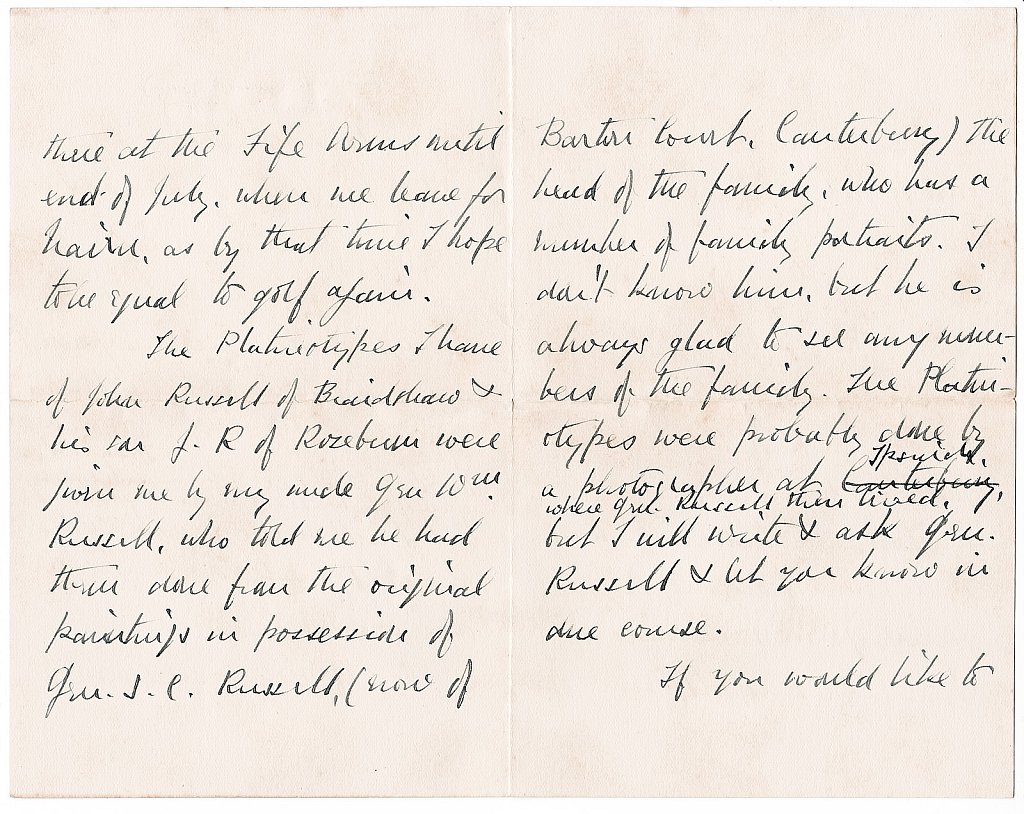 there at the Fife Arms until
end of July, when we leave for
Nairn, as by that time I hope
to be equal to golf again.
The Platinotypes I have
of John Russell of Braidshaw &
his son J. R of Roseburn were
given me by my uncle Gen Wm
Russell, who told me he had
them done from the original
paintings in possession of
Gen. F. C. Russell, (now of
Barton Court, Canterbury) the
head of the family, who has a
number of family portraits. I
don't know him, but he is
always glad to see any mem-
bers of the family. The Platin-
otypes were probably done by
Ipswich,
a photographer at Canterbury,
where Gen. Russell then lived,
but I will write & ask Gen.
Russell & let you know in
due course.
If you would like to